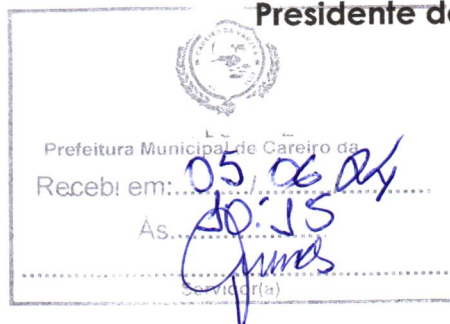 Presidente d
Prefeitura Municipal de Careiro da
Recebi em: 05/06/24
Às 10:15
Servidor(a)